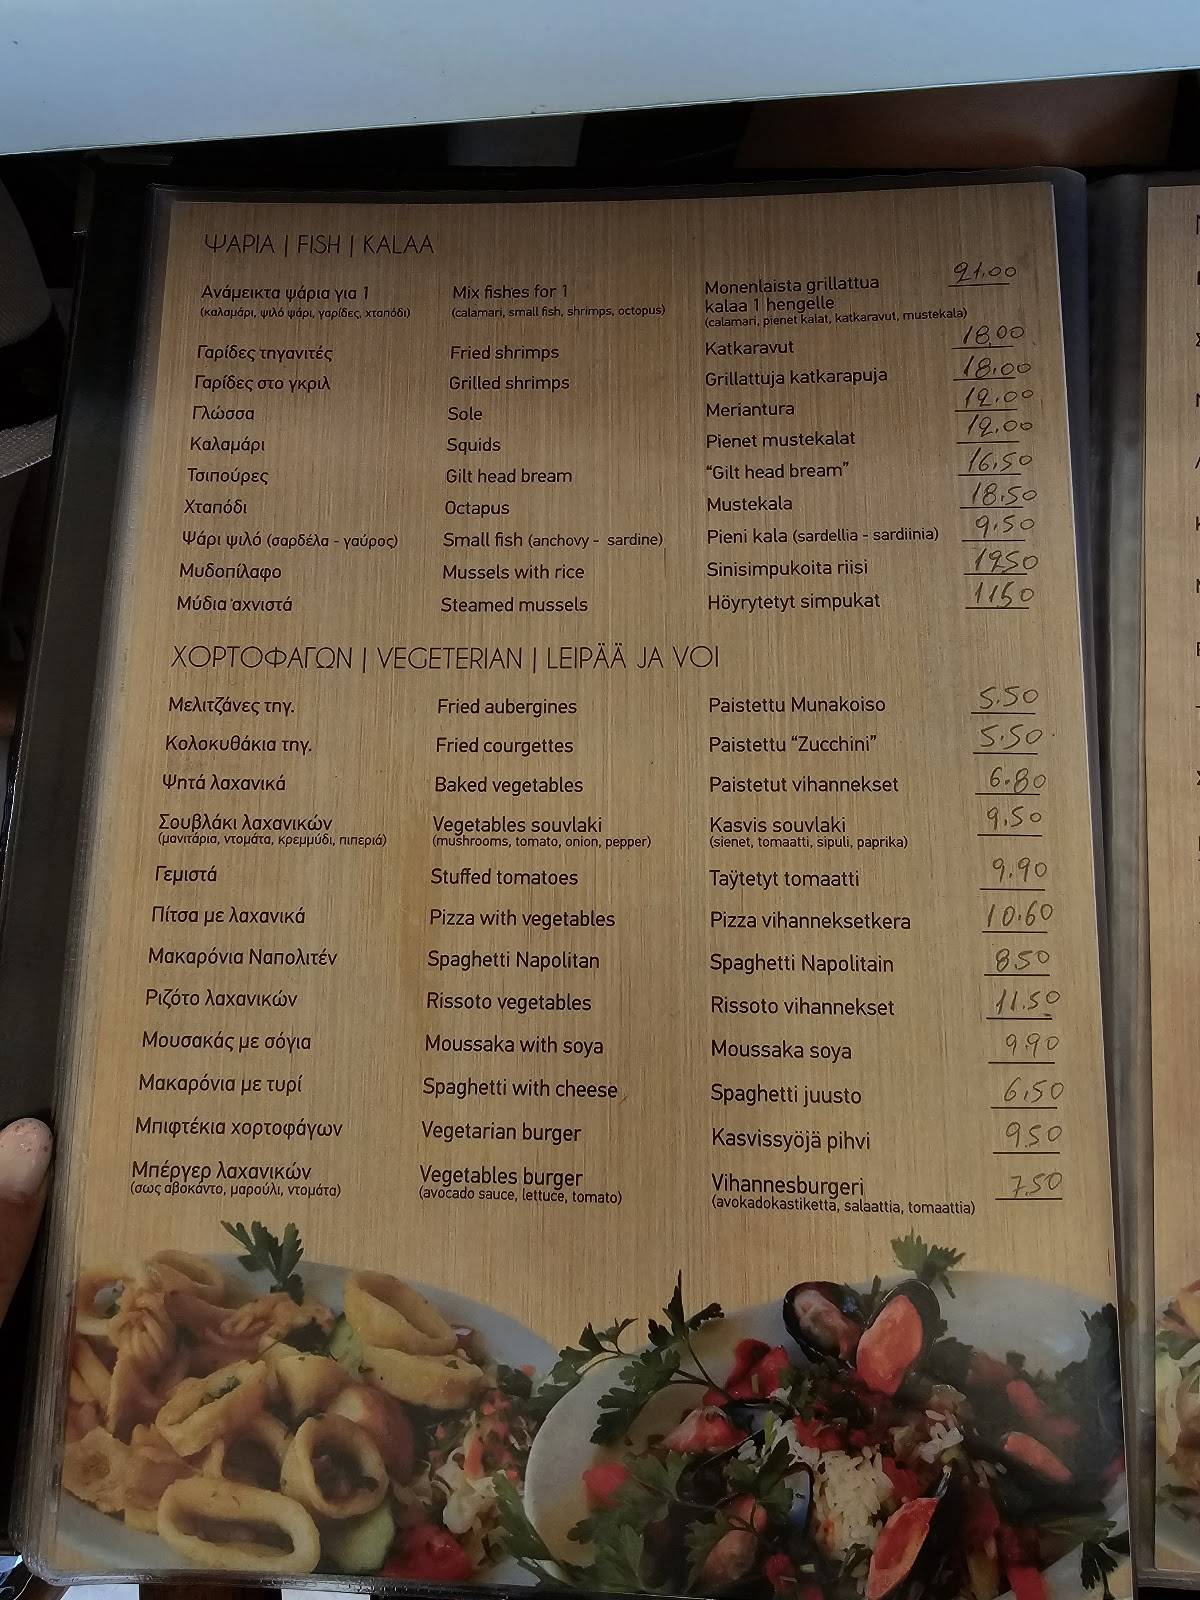 ΨΑΡΙΑ | FISH | KALAA
Ανάμεικτα ψάρια για 1 Mix fishes for 1 Monenlaista grillattua 21.00
kalaa 1 hengelle
(καλαμάρι, ψιλό ψάρι, γαρίδες, χταπόδι) (calamari, small fish, shrimps, octopus) (calamari, pienet kalat, katkaravut, mustekala)
Γαρίδες τηγανιτές Fried shrimps Katkaravut 18.00
Γαρίδες στο γκριλ Grilled shrimps Grillattuja katkarapuja 18.00
Γλώσσα Sole Meriantura 12.00
Καλαμάρι Squids Pienet mustekalat 12.00
Τσιπούρες Gilt head bream "Gilt head bream" 16.50
Χταπόδι Octapus Mustekala 18.50
Ψάρι ψιλό (σαρδέλα - γαύρος) Small fish (anchovy - sardine) Pieni kala (sardellia - sardiinia) 9.50
Μυδοπίλαφο Mussels with rice Sinisimpukoita riisi 12.50
Μύδια αχνιστά Steamed mussels Höyrytetyt simpukat 11.50
ΧΟΡΤΟΦΑΓΩΝ | VEGETERIAN | LEIPÄÄ JA VOI
Μελιτζάνες τηγ. Fried aubergines Paistettu Munakoiso 5.50
Κολοκυθάκια τηγ. Fried courgettes Paistettu "Zucchini" 5.50
Ψητά λαχανικά Baked vegetables Paistetut vihannekset 6.80
Σουβλάκι λαχανικών Vegetables souvlaki Kasvis souvlaki 9.50
(μανιτάρια, ντομάτα, κρεμμύδι, πιπεριά) (mushrooms, tomato, onion, pepper) (sienet, tomaatti, sipuli, paprika)
Γεμιστά Stuffed tomatoes Taÿtetyt tomaatti 9.90
Πίτσα με λαχανικά Pizza with vegetables Pizza vihanneksetkera 10.60
Μακαρόνια Ναπολιτέν Spaghetti Napolitan Spaghetti Napolitain 8.50
Ριζότο λαχανικών Rissoto vegetables Rissoto vihannekset 11.50
Μουσακάς με σόγια Moussaka with soya Moussaka soya 9.90
Μακαρόνια με τυρί Spaghetti with cheese Spaghetti juusto 6.50
Μπιφτέκια χορτοφάγων Vegetarian burger Kasvissyöjä pihvi 9.50
Μπέργερ λαχανικών Vegetables burger Vihannesburgeri 7.50
(σως αβοκάντο, μαρούλι, ντομάτα) (avocado sauce, lettuce, tomato) (avokadokastiketta, salaattia, tomaattia)